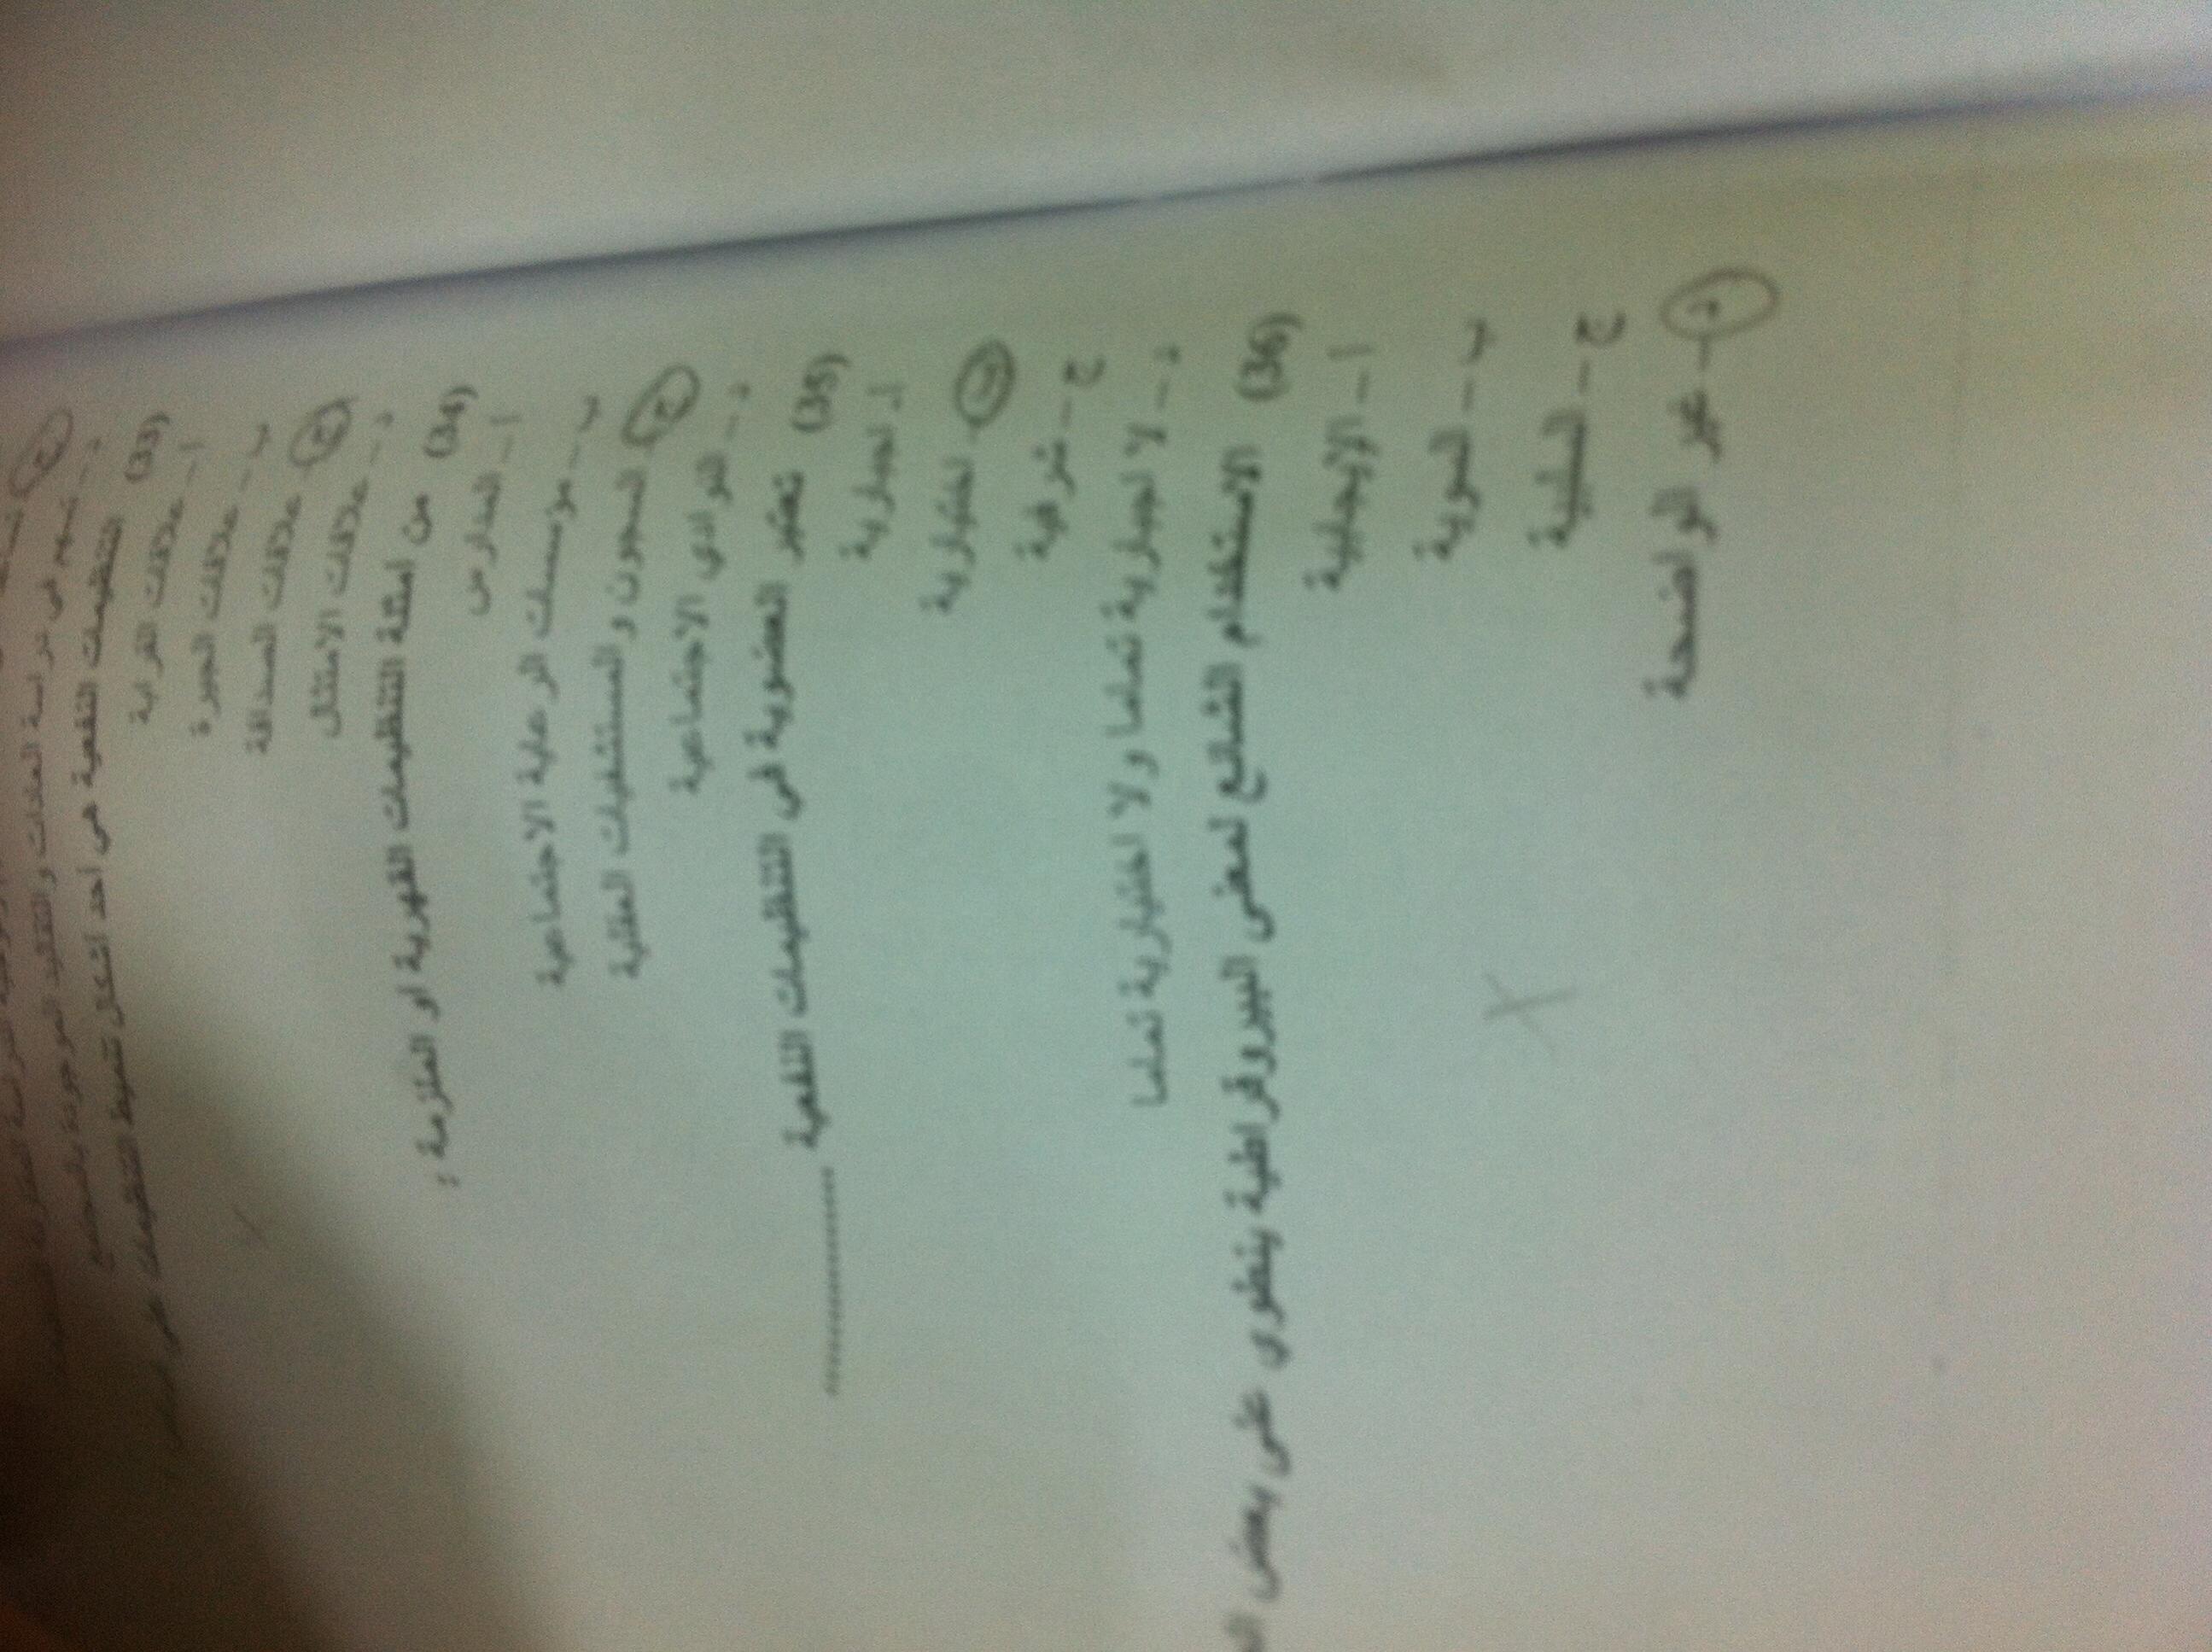 د – تسهم في دراسة العادات والتقاليد الموجودة بالمجتمع
(33) التنظيمات النفعية هي أحد اشكال تنميط التنظيمات على
أ – علاقات القرابة
ب – علاقات الجيرة
ج علاقات الصداقة
د – علاقات الامتثال
(34) من امثلة التنظيمات القهرية او الملزمة :
أ – المدارس
ب – مؤسسات الرعاية الاجتماعية
ج السجون والمستشفيات العقلية
د – النوادي الاجتماعية
(35) تعتبر العضوية في التنظيمات النفعية ..............
أـ اجبارية
ب اختيارية
ج – شرفية
د – لا اجبارية تماما ولا اختيارية تماما
(36) الاستخدام الشائع لمعنى البيروقراطية ينطوي على بعض
أ – الإيجابية
ب –
ج – السلبية
د – غير الواضحة